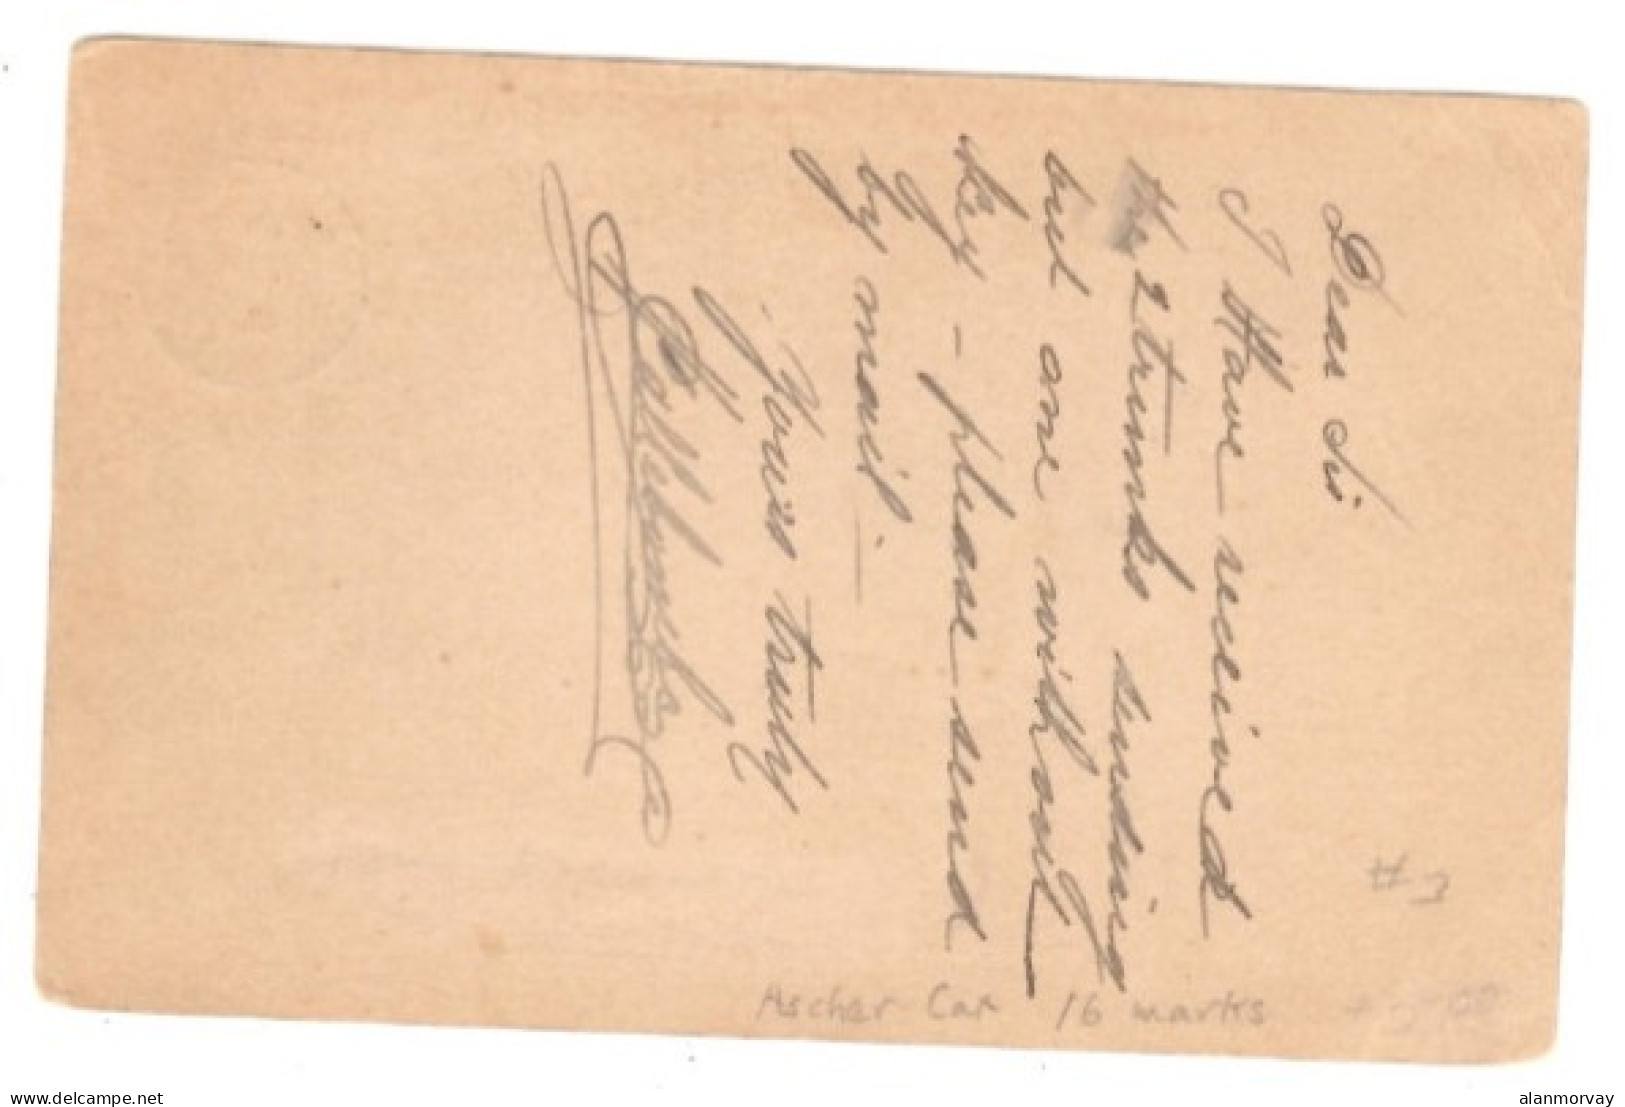 Dear Sir
I Have received
the 2 trunks sending
but one without
Key - please send
by mail.
Yours truly
#3
Ascher Cat 16 marks
www.delcampe.net
alanmorvay